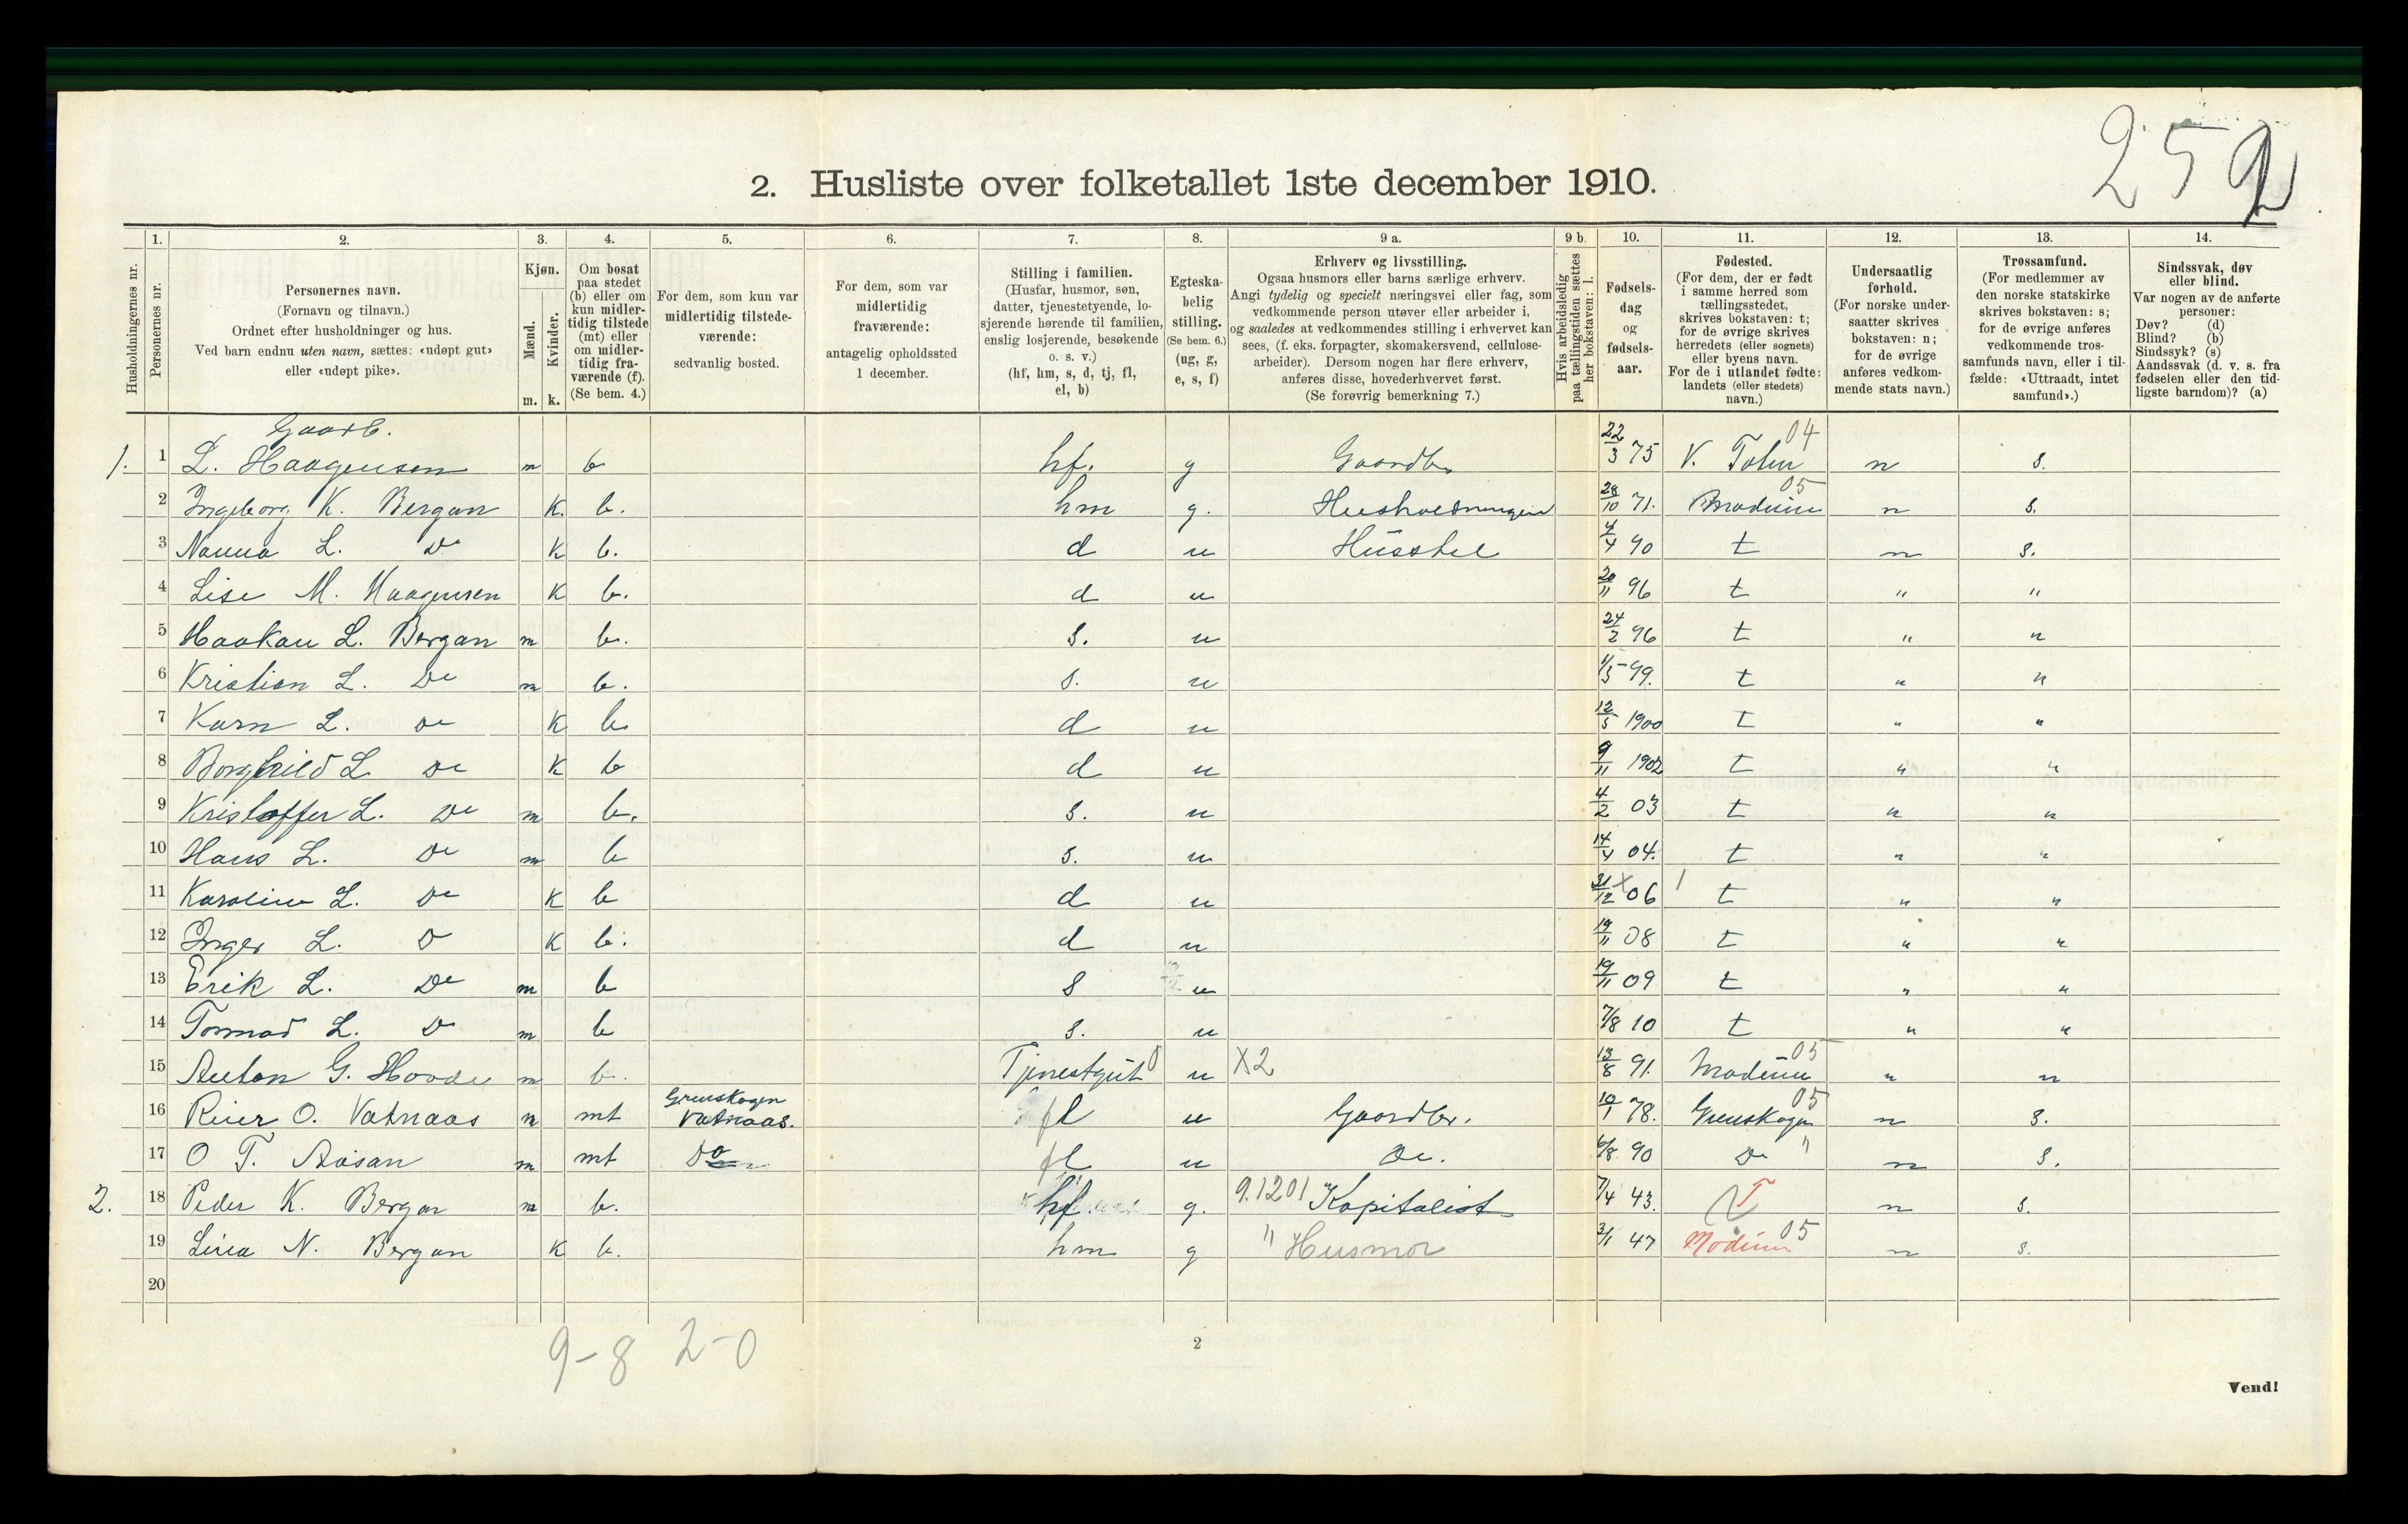 252
2. Husliste over folketallet 1ste december 1910.
Husholdningernes nr.
1. Personernes nr.
2. Personernes navn.
(Fornavn og tilnavn.)
Ordnet efter husholdninger og hus.
Ved barn endnu uten navn, sættes: «udøpt gut»
eller «udøpt pike».
3. Kjøn.
Mænd. m.
Kvinder. k.
4. Om bosat
paa stedet
(b) eller om
kun midler-
tidig tilstede
(mt) eller
om midler-
tidig fra-
værende (f).
(Se bem. 4.)
5. For dem, som kun var
midlertidig tilstede-
værende:
sedvanlig bosted.
6. For dem, som var
midlertidig
fraværende:
antagelig opholdssted
1 december.
7. Stilling i familien.
(Husfar, husmor, søn,
datter, tjenestetyende, lo-
sjerende hørende til familien,
enslig losjerende, besøkende
o. s. v.)
(hf, hm, s, d, tj, fl,
el, b)
8. Egteska-
belig
stilling.
(Se bem. 6.)
(ug, g,
e, s, f)
9 a. Erhverv og livsstilling.
Ogsaa husmors eller barns særlige erhverv.
Angi tydelig og specielt næringsvei eller fag, som
vedkommende person utøver eller arbeider i,
og saaledes at vedkommendes stilling i erhvervet kan
sees, (f. eks. forpagter, skomakersvend, cellulose-
arbeider). Dersom nogen har flere erhverv,
anføres disse, hovederhvervet først.
(Se forøvrig bemerkning 7.)
9 b. Hvis arbeidsledig
paa tællingstiden sættes
her bokstaven: l.
10. Fødsels-
dag
og
fødsels-
aar.
11. Fødested.
(For dem, der er født
i samme herred som
tællingsstedet,
skrives bokstaven: t;
for de øvrige skrives
herredets (eller sognets)
eller byens navn.
For de i utlandet fødte:
landets (eller stedets)
navn.)
12. Undersaatlig
forhold.
(For norske under-
saatter skrives
bokstaven: n;
for de øvrige
anføres vedkom-
mende stats navn.)
13. Trossamfund.
(For medlemmer av
den norske statskirke
skrives bokstaven: s;
for de øvrige anføres
vedkommende tros-
samfunds navn, eller i til-
fælde: «Uttraadt, intet
samfund».)
14. Sindssvak, døv
eller blind.
Var nogen av de anførte
personer:
Døv? (d)
Blind? (b)
Sindssyk? (s)
Aandssvak (d. v. s. fra
fødselen eller den tid-
ligste barndom)? (a)
Gaardb.
1. 1 L. Haagensen m b hf. g Gaardbr 22/3 75 V. Toten 04 n s.
2 Ingeborg K. Bergan K. b. hm g. Husholdningen 28/10 71. Modum 05 n s.
3 Nanna L. Do K b. d u Husstel 4/4 90 t n s.
4 Lise M. Haagensen K b. d u 20/11 96 t " "
5 Haakon L. Bergan m b. s. u 24/2 96 t " "
6 Kristian L. Do m b. s. u 1/5 99. t " "
7 Karn L. Do K b d u 12/5 1900 t " "
8 Borghild L Do K b d u 9/11 1902 t " "
9 Kristoffer L. Do m b. s. u 4/2 03 t " "
10 Hans L. Do m b s. u 14/4 04. t " "
11 Karoline L. Do K b d u 31/12 06 t " "
12 Inger L. Do K b. d u 19/11 08 t " "
13 Erik L. Do m b s u 19/11 09 t " "
14 Tormod L. Do m b s. u 7/8 10 t " "
15 Anton G. Hovde m b. Tjenestgut u X2 13/8 91. Modum 05 " "
16 Reier O. Vatnaas m mt Grenskogen Vatnaas. fl u Gaardbr. 10/1 78. Grenskogen 05 n s.
17 O T. Aasan m mt Do fl u Do. 6/8 90 Do " n s.
2. 18 Peder K. Bergan m b. hf. g. 9.1201 Kapitalist 7/4 43. T n s.
19 Lina N. Bergan K b. hm g " Husmor 3/1 47 Modum 05 n s.
20
9-8 2-0
2
Vend!